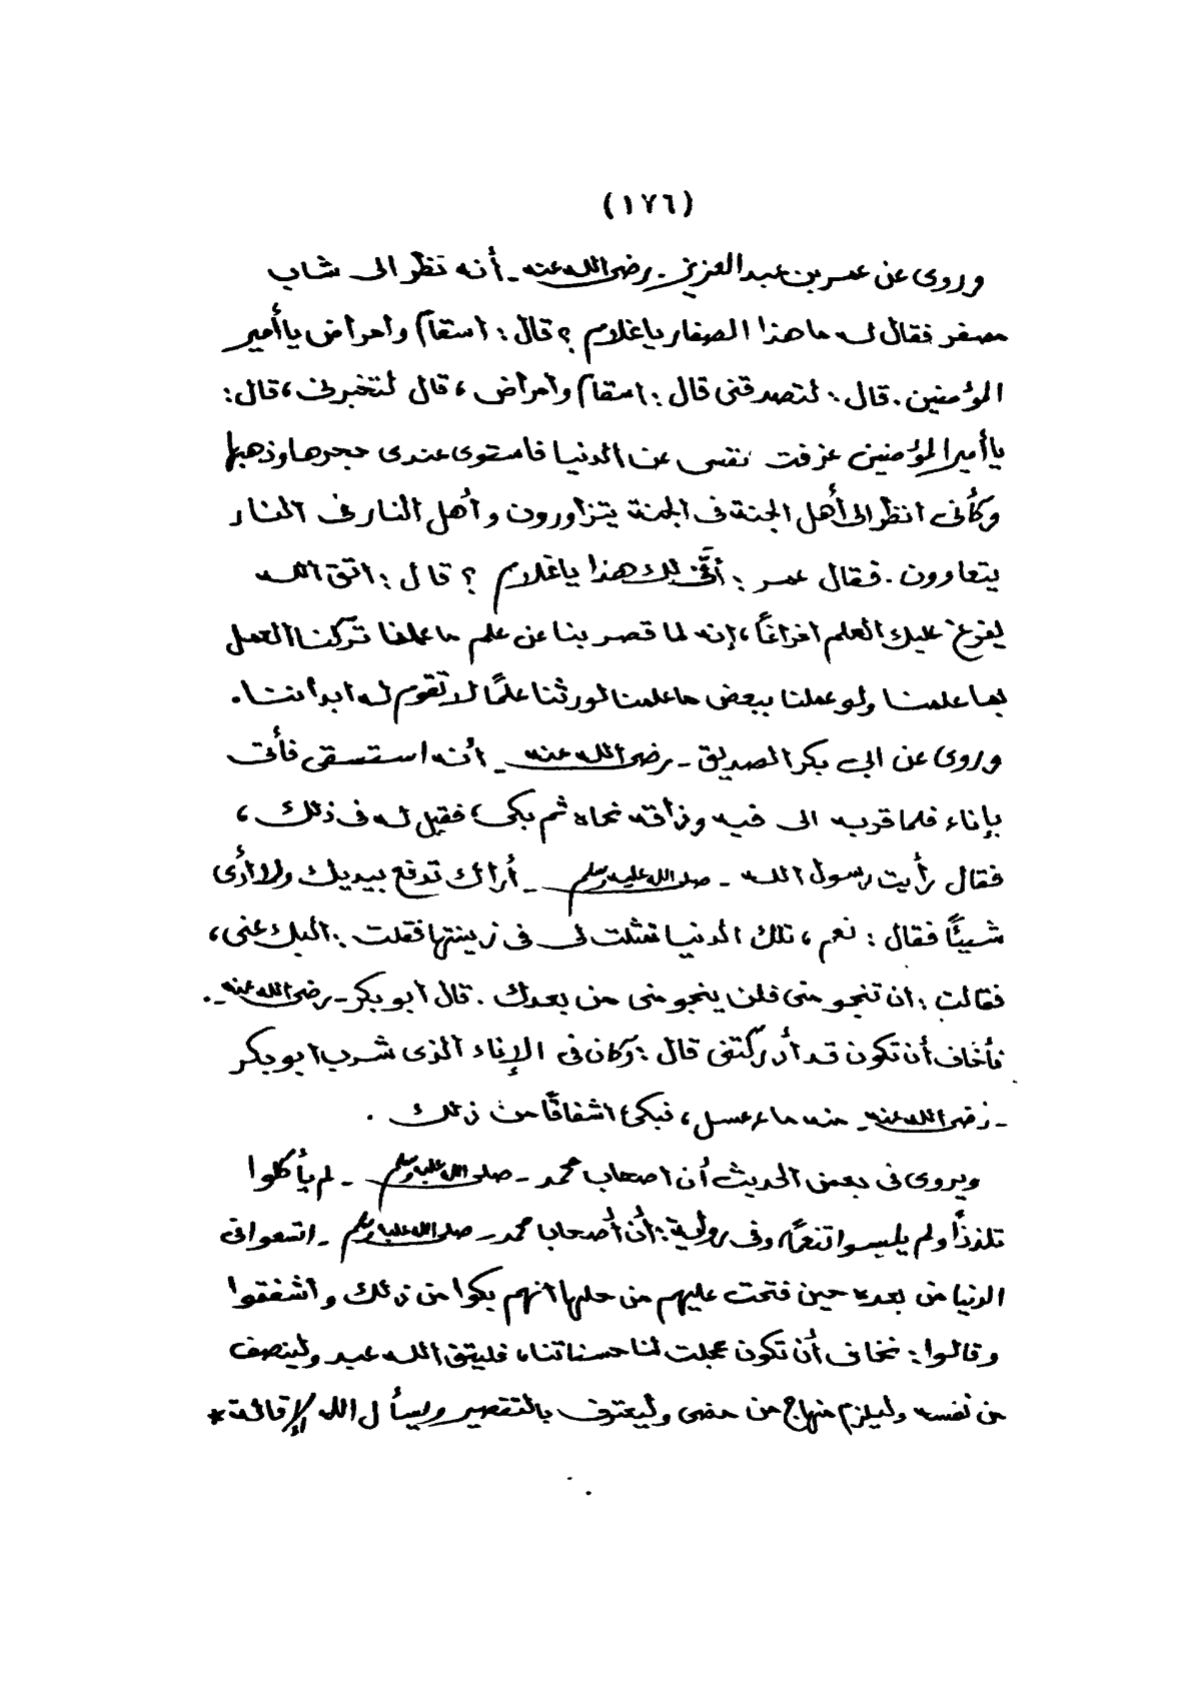 (١٧٦)
وروى عن عمر بن عبد العزيز - رضى الله عنه - أنه نظر الى شاب
مصفر فقال له ما هذا الصفار يا غلام ؟ قال : اسقام وامراض يا أمير
المؤمنين . قال : لتصدقنى قال : اسقام وأمراض ، قال لتخبرنى ، قال :
يا أمير المؤمنين عزفت نفسى عن الدنيا فاستوى عندى حجرها وذهبها
وكأنى انظر الى أهل الجنة فى الجنة يتزاورون وأهل النار فى النار
يتعاوون . فقال عمر : أنَّى لك هذا يا غلام ؟ قال : اتق الله
يفرغ عليك العلم افراغاً ، إنه لما قصر بنا عن علم ما عملنا تركنا العمل
بما علمنا ولو عملنا ببعض ما علمنا لورثنا علمًا لا تقوم له ابداننا .
وروى عن ابى بكر الصديق - رضى الله عنه - أنه استسقى فأتى
بإناء فلما قربه الى فيه وذاقه نحاه ثم بكى ، فقيل له فى ذلك ،
فقال رأيت رسول الله - صلى الله عليه وسلم - أراك تدفع بيديك ولا أرى
شيئًا فقال : نعم ، تلك الدنيا تمثلت لى فى زينتها فقلت : اليك عنى ،
فقالت : ان تنجو منى فلن ينجو منى من بعدك . قال ابو بكر - رضى الله عنه - .
فأخاف أن تكون قد أدركتنى قال : وكان فى الإناء الذى شرب ابو بكر
- رضى الله عنه - منه ماء عسل ، فبكى اشفاقًا من ذلك .
ويروى فى بعض الحديث أن اصحاب محمد - صلى الله عليه وسلم - لم يأكلوا
تلذذاً ولم يلبسوا تنعمًا ، وفى رواية : أن أصحاب محمد - صلى الله عليه وسلم - اتسعوا فى
الدنيا من بعده حين فتحت عليهم من حلها انهم بكوا من ذلك واشفقوا
وقالوا : نخاف أن تكون عجلت لنا حسناتنا ، فليتق الله عبد ولينصف
من نفسه وليلزم منهاج من مضى وليعترف بالتقصير ويسأل الله الإقالة *